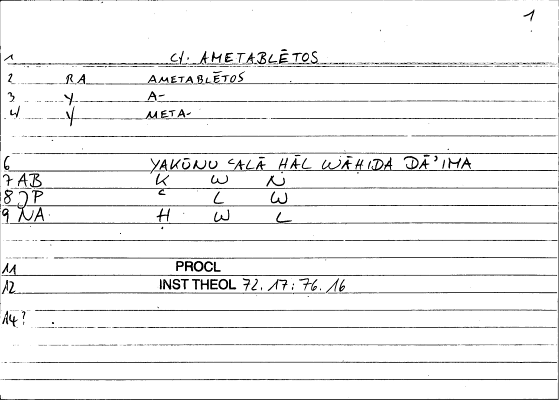 1
1 cf. AMETABLĒTOS
2 RA AMETABLĒTOS
3 Y A-
4 Y META-
6 YAKŪNU ʿALĀ HĀL WĀHIDA DĀʾIMA
7 AB K W N
8 JP ʿ L W
9 NA Ḥ W L
11 PROCL
12 INST THEOL 72.17: 76.16
14?